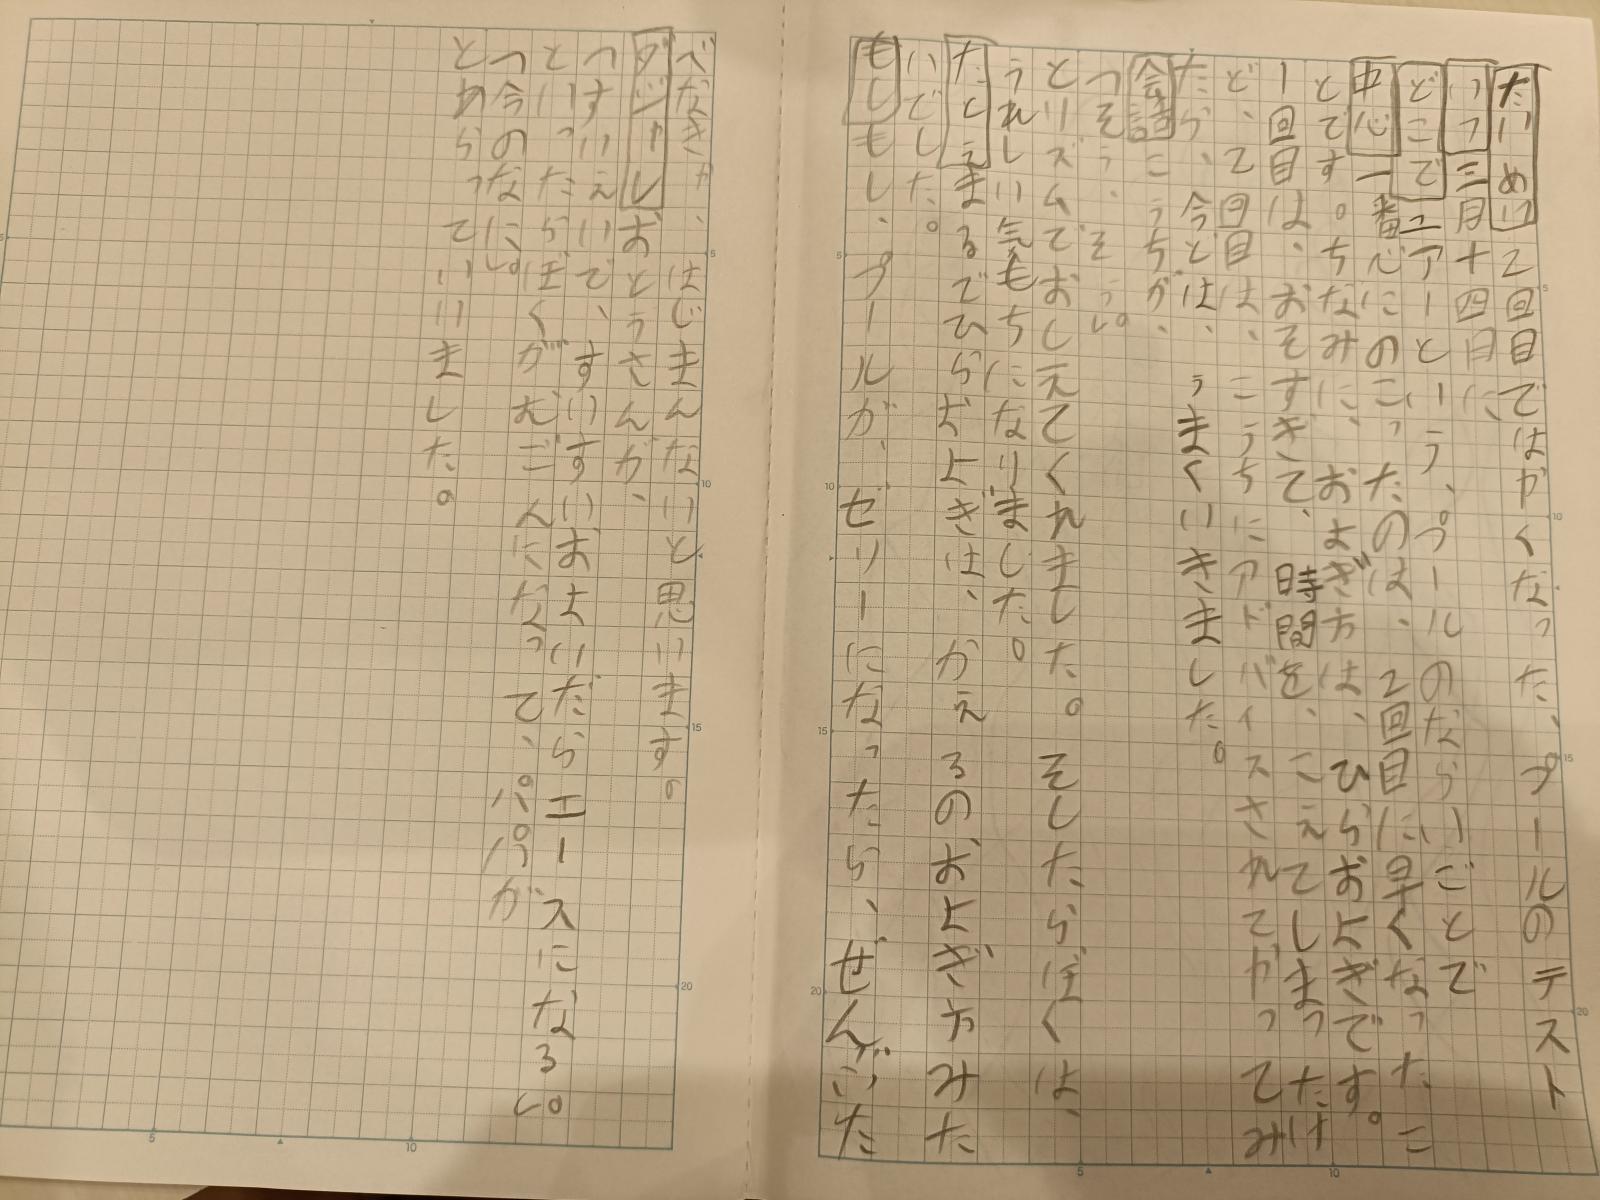 だい めい 2回目ではやくなった、プールのテスト
いつ 三月十四日に、
どこで エアーという、プールのならいごとで
中心 一番心にのこったのは、2回目に早くなったこ
とです。ちなみに、およぎ方は、ひらおよぎです。
一回目は、おそすぎて、時間を、こえてしまったけ
ど、2回目は、こうちにアドバイスされてやってみ
たら、今どは、うまくいきました。
会話 こうちが、
「そう、そう。」
とリズムでおしえてくれました。そしたらぼくは、
うれしい気もちになりました。
たとえ まるでひらおよぎは、かえるのおよぎ方みた
いでした。
もし もし、プールが、ゼリーになったら、ぜんぶた
べなきゃ、はじまんないと思います。
ダジャレ おとうさんが、
「すいえいで、すいすいおよいだらエースになる。」
といったらぼくがむごんになって、パパが
「今のなに。」
とわらっていいました。